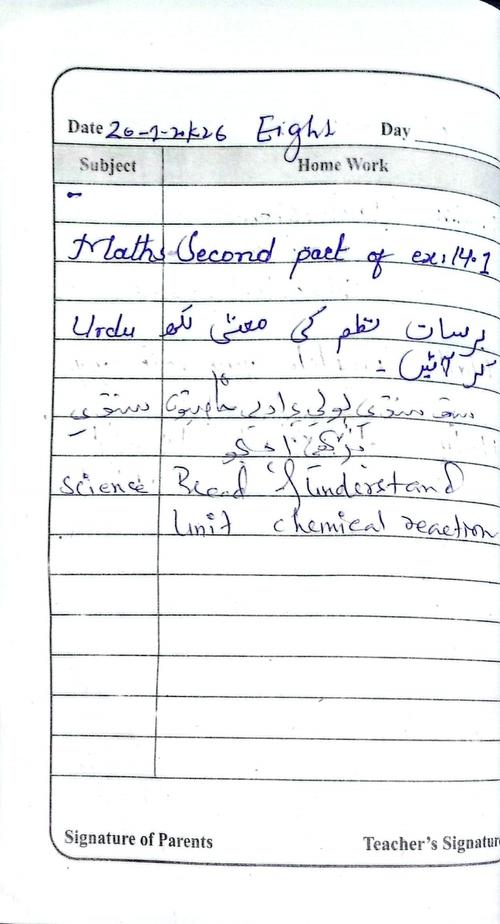 Date 20-1-2026 Eight Day
Subject Home Work
Maths Second part of ex:14.1
Urdu برسات نظم کی معنیٰ لکھ
کر آئیں۔
سنڌي
Science Read & Understand
Unit chemical reaction
Signature of Parents Teacher's Signature